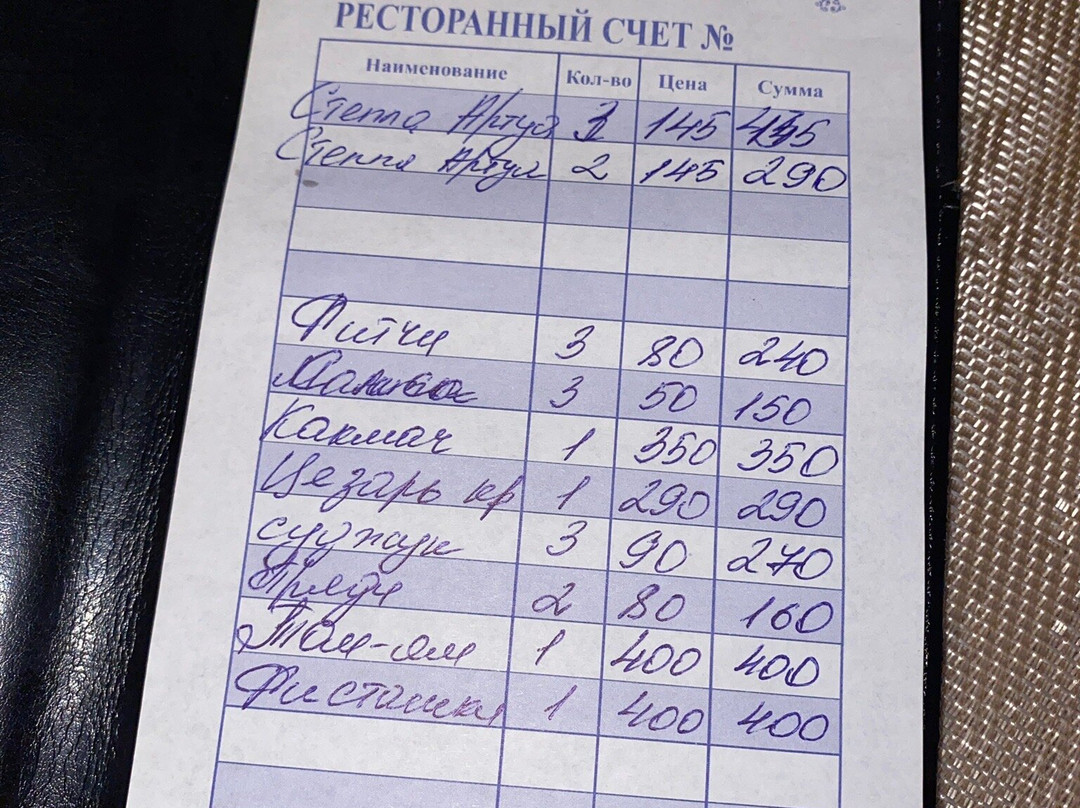 РЕСТОРАННЫЙ СЧЕТ №
Наименование Кол-во Цена Сумма
Стелла Артуа 145
Стелла Артуа 2 145 290
Фитчи 3 80 240
3 50 150
Какмач 1 350 350
Цезарь кр 1 290 290
суужук 3 90 270
2 80 160
Том-ям 1 400 400
Фисташки 1 400 400